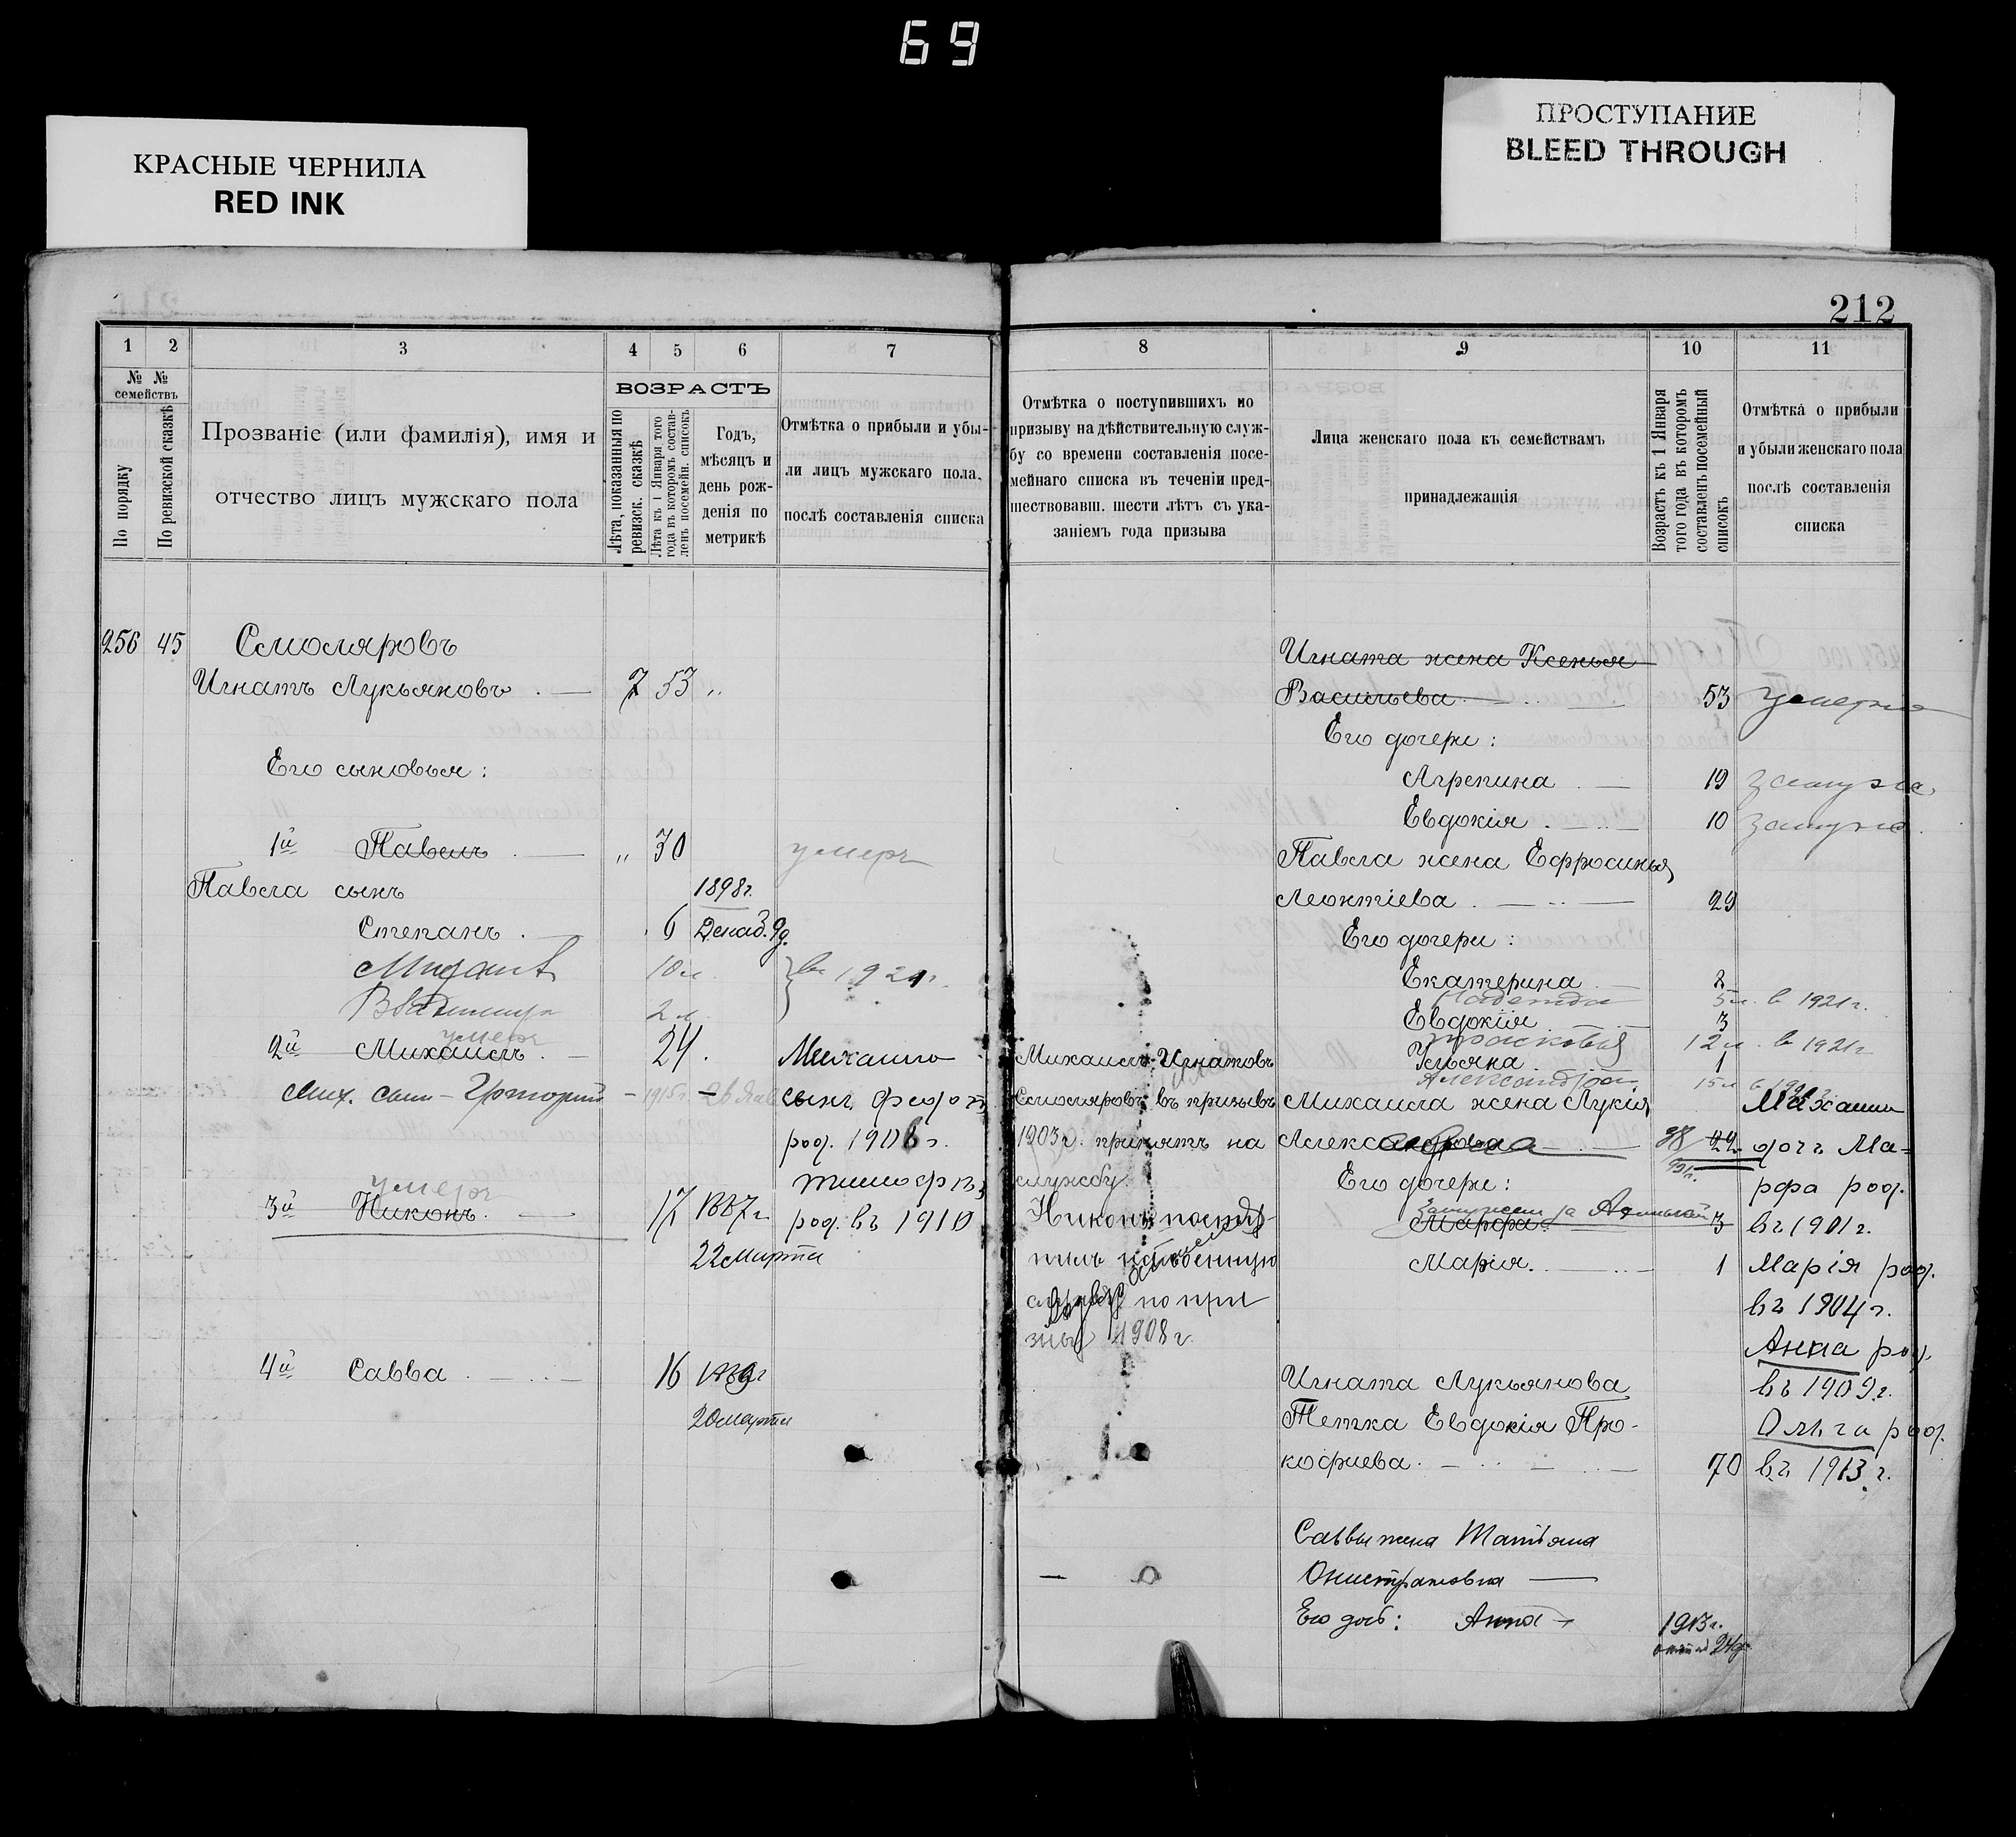 69
КРАСНЫЕ ЧЕРНИЛА
RED INK
ПРОСТУПАНИЕ
BLEED THROUGH
212
1 2 3 4 5 6 7
№ № семействъ
По порядку
По ревизской сказкѣ
Прозваніе (или фамилія), имя и
отчество лицъ мужскаго пола
ВОЗРАСТЪ
Лѣта, показанныя по
ревизск. сказкѣ
Лѣта къ 1 Января того
года въ которомъ состав-
ленъ посемейн. списокъ
Годъ,
мѣсяцъ и
день рож-
денія по
метрикѣ
Отмѣтка о прибыли и убы-
ли лицъ мужскаго пола,
послѣ составленія списка
256 45 Смоляровъ
Игнатъ Лукьяновъ 7 53 „
Его сыновья:
1й Павелъ „ 30 умеръ
Павла сынъ 1898г.
Степанъ 6 Декаб. 9д.
10л. в 1921г.
Владимир 2л.
умеръ
2й Михаилъ 24. Михаила
Мих. сын – Григорий – 1915г. – сынъ Федотъ
род. 1906г.
умеръ
3й Никонъ 17 1887г. род. въ 1910
22 марта
4й Савва 16 1889г
20 марта
8 9 10 11
Отмѣтка о поступившихъ по
призыву на дѣйствительную служ-
бу со времени составленія посе-
мейнаго списка въ теченіи пред-
шествовавш. шести лѣтъ съ ука-
заніемъ года призыва
Лица женскаго пола къ семействамъ
принадлежащія
Возрастъ къ 1 Января
того года въ которомъ
составленъ посемейный
списокъ
Отмѣтка о прибыли
и убыли женскаго пола
послѣ составленія
списка
Игната жена Ксенья
Васильева 53 умерла
Его дочери:
Агрепина 19 замуж.
Евдокія 10 замуж.
Павла жена Ефросинья
Леонтіева 29
Его дочери:
Екатерина 2
Надежда 5л. в 1921г.
Евдокія 3
Прасковья 12л. в 1921г
Ульяна 1
Александра 15л
Михаилъ Игнатовъ
Смоляровъ въ призывъ Михаила жена Лукія Михаила
1903г. принятъ на Александрова 22 дочь Ма-
службу. Его дочери: рфа род.
Никонъ Марфа 3 въ 1901г.
Марія 1 Марія род.
по при въ 1904г.
зыву 1908г.
Анна род.
Игната Лукьянова въ 1909г.
Тетка Евдокія Про- Ольга род.
кофиева 70 въ 1913г.
Саввы жена Татьяна
Онистратовна
Его доч: Анна 1913г.